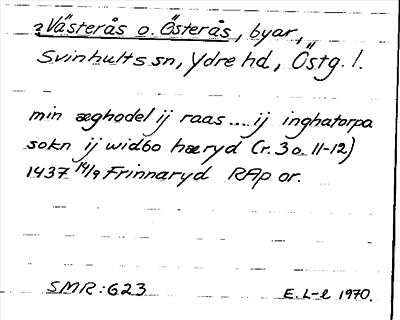 ?Västerås o. Österås, byar,
Svinhults sn, Ydre hd, Östg. l.
min æghodel ij raas .... ij inghatorpa
sokn ij widbo hæryd (r. 3 o. 11-12)
1437 14/9 Frinnaryd RAp or.
SMR: 623 E. L-e 1970.